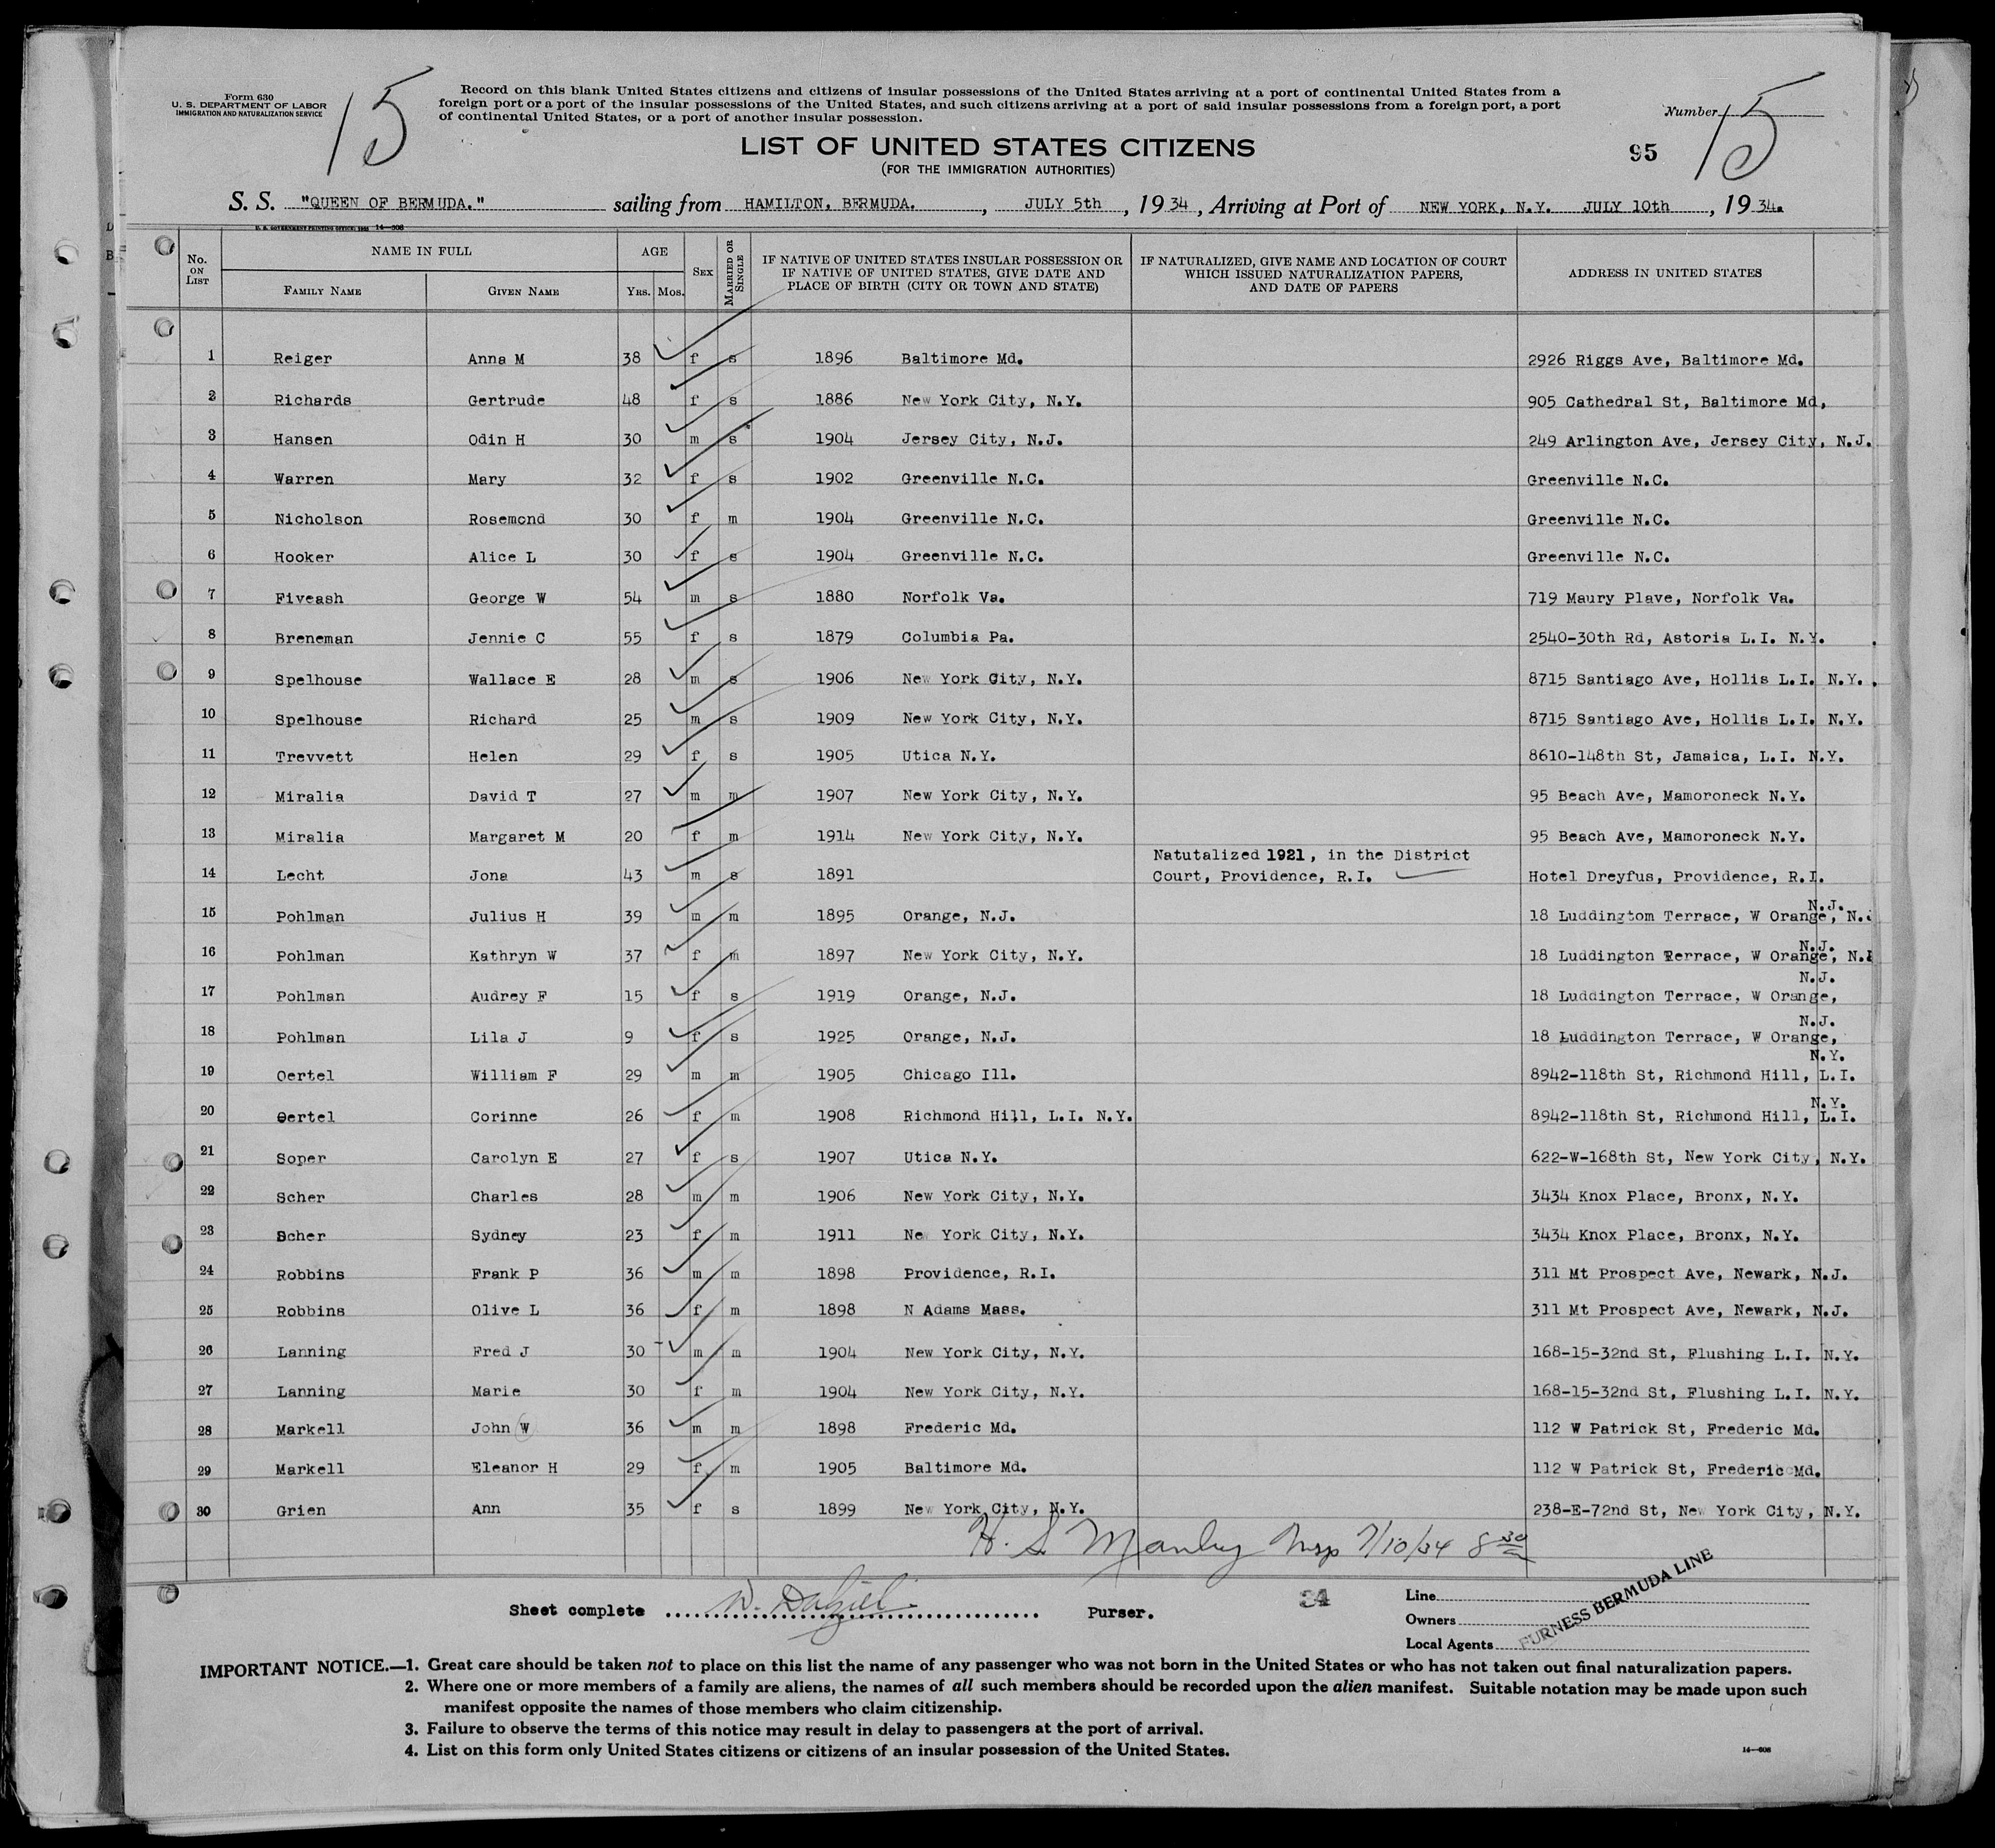 Form 630
U. S. DEPARTMENT OF LABOR
IMMIGRATION AND NATURALIZATION SERVICE
15
Record on this blank United States citizens and citizens of insular possessions of the United States arriving at a port of continental United States from a
foreign port or a port of the insular possessions of the United States, and such citizens arriving at a port of said insular possessions from a foreign port, a port
of continental United States, or a port of another insular possession.
Number 15
LIST OF UNITED STATES CITIZENS
95
(FOR THE IMMIGRATION AUTHORITIES)
S. S. "QUEEN OF BERMUDA." sailing from HAMILTON, BERMUDA. , JULY 5th , 1934 , Arriving at Port of NEW YORK, N.Y. JULY 10th , 1934.
U. S. GOVERNMENT PRINTING OFFICE: 14—608
No. ON LIST
NAME IN FULL
FAMILY NAME
GIVEN NAME
AGE
YRS. MOS.
SEX
MARRIED OR SINGLE
IF NATIVE OF UNITED STATES INSULAR POSSESSION OR
IF NATIVE OF UNITED STATES, GIVE DATE AND
PLACE OF BIRTH (CITY OR TOWN AND STATE)
IF NATURALIZED, GIVE NAME AND LOCATION OF COURT
WHICH ISSUED NATURALIZATION PAPERS,
AND DATE OF PAPERS
ADDRESS IN UNITED STATES
1 Reiger Anna M 38 f s 1896 Baltimore Md. 2926 Riggs Ave, Baltimore Md.
2 Richards Gertrude 48 f s 1886 New York City, N.Y. 905 Cathedral St, Baltimore Md,
3 Hansen Odin H 30 m s 1904 Jersey City, N.J. 249 Arlington Ave, Jersey City, N.J.
4 Warren Mary 32 f s 1902 Greenville N.C. Greenville N.C.
5 Nicholson Rosemond 30 f m 1904 Greenville N.C. Greenville N.C.
6 Hooker Alice L 30 f s 1904 Greenville N.C. Greenville N.C.
7 Fiveash George W 54 m s 1880 Norfolk Va. 719 Maury Plave, Norfolk Va.
8 Breneman Jennie C 55 f s 1879 Columbia Pa. 2540-30th Rd, Astoria L.I. N.Y.
9 Spelhouse Wallace E 28 m s 1906 New York City, N.Y. 8715 Santiago Ave, Hollis L.I. N.Y.
10 Spelhouse Richard 25 m s 1909 New York City, N.Y. 8715 Santiago Ave, Hollis L.I. N.Y.
11 Trevvett Helen 29 f s 1905 Utica N.Y. 8610-148th St, Jamaica, L.I. N.Y.
12 Miralia David T 27 m m 1907 New York City, N.Y. 95 Beach Ave, Mamoroneck N.Y.
13 Miralia Margaret M 20 f m 1914 New York City, N.Y. 95 Beach Ave, Mamoroneck N.Y.
Natutalized 1921, in the District
14 Lecht Jona 43 m s 1891 Court, Providence, R.I. Hotel Dreyfus, Providence, R.I.
N.J.
15 Pohlman Julius H 39 m m 1895 Orange, N.J. 18 Luddingtom Terrace, W Orange, N.J
N.J.
16 Pohlman Kathryn W 37 f m 1897 New York City, N.Y. 18 Luddington Terrace, W Orange, N.
N.J.
17 Pohlman Audrey F 15 f s 1919 Orange, N.J. 18 Luddington Terrace, W Orange,
N.J.
18 Pohlman Lila J 9 f s 1925 Orange, N.J. 18 Luddington Terrace, W Orange,
N.Y.
19 Oertel William F 29 m m 1905 Chicago Ill. 8942-118th St, Richmond Hill, L.I.
N.Y.
20 Oertel Corinne 26 f m 1908 Richmond Hill, L.I. N.Y. 8942-118th St, Richmond Hill, L.I.
21 Soper Carolyn E 27 f s 1907 Utica N.Y. 622-W-168th St, New York City, N.Y.
22 Scher Charles 28 m m 1906 New York City, N.Y. 3434 Knox Place, Bronx, N.Y.
23 Scher Sydney 23 f m 1911 Ne York City, N.Y. 3434 Knox Place, Bronx, N.Y.
24 Robbins Frank P 36 m m 1898 Providence, R.I. 311 Mt Prospect Ave, Newark, N.J.
25 Robbins Olive L 36 f m 1898 N Adams Mass. 311 Mt Prospect Ave, Newark, N.J.
26 Lanning Fred J 30 m m 1904 New York City, N.Y. 168-15-32nd St, Flushing L.I. N.Y.
27 Lanning Marie 30 f m 1904 New York City, N.Y. 168-15-32nd St, Flushing L.I. N.Y.
28 Markell John W 36 m m 1898 Frederic Md. 112 W Patrick St, Frederic Md.
29 Markell Eleanor H 29 f m 1905 Baltimore Md. 112 W Patrick St, Frederic Md.
30 Grien Ann 35 f s 1899 New York City, N.Y. 238-E-72nd St, New York City, N.Y.
H. S. Manley Insp 7/10/34 8 30
Sheet complete W. Dalziel Purser.
34
Line
Owners
Local Agents
FURNESS BERMUDA LINE
IMPORTANT NOTICE.—1. Great care should be taken not to place on this list the name of any passenger who was not born in the United States or who has not taken out final naturalization papers.
2. Where one or more members of a family are aliens, the names of all such members should be recorded upon the alien manifest. Suitable notation may be made upon such
manifest opposite the names of those members who claim citizenship.
3. Failure to observe the terms of this notice may result in delay to passengers at the port of arrival.
4. List on this form only United States citizens or citizens of an insular possession of the United States.
14—608